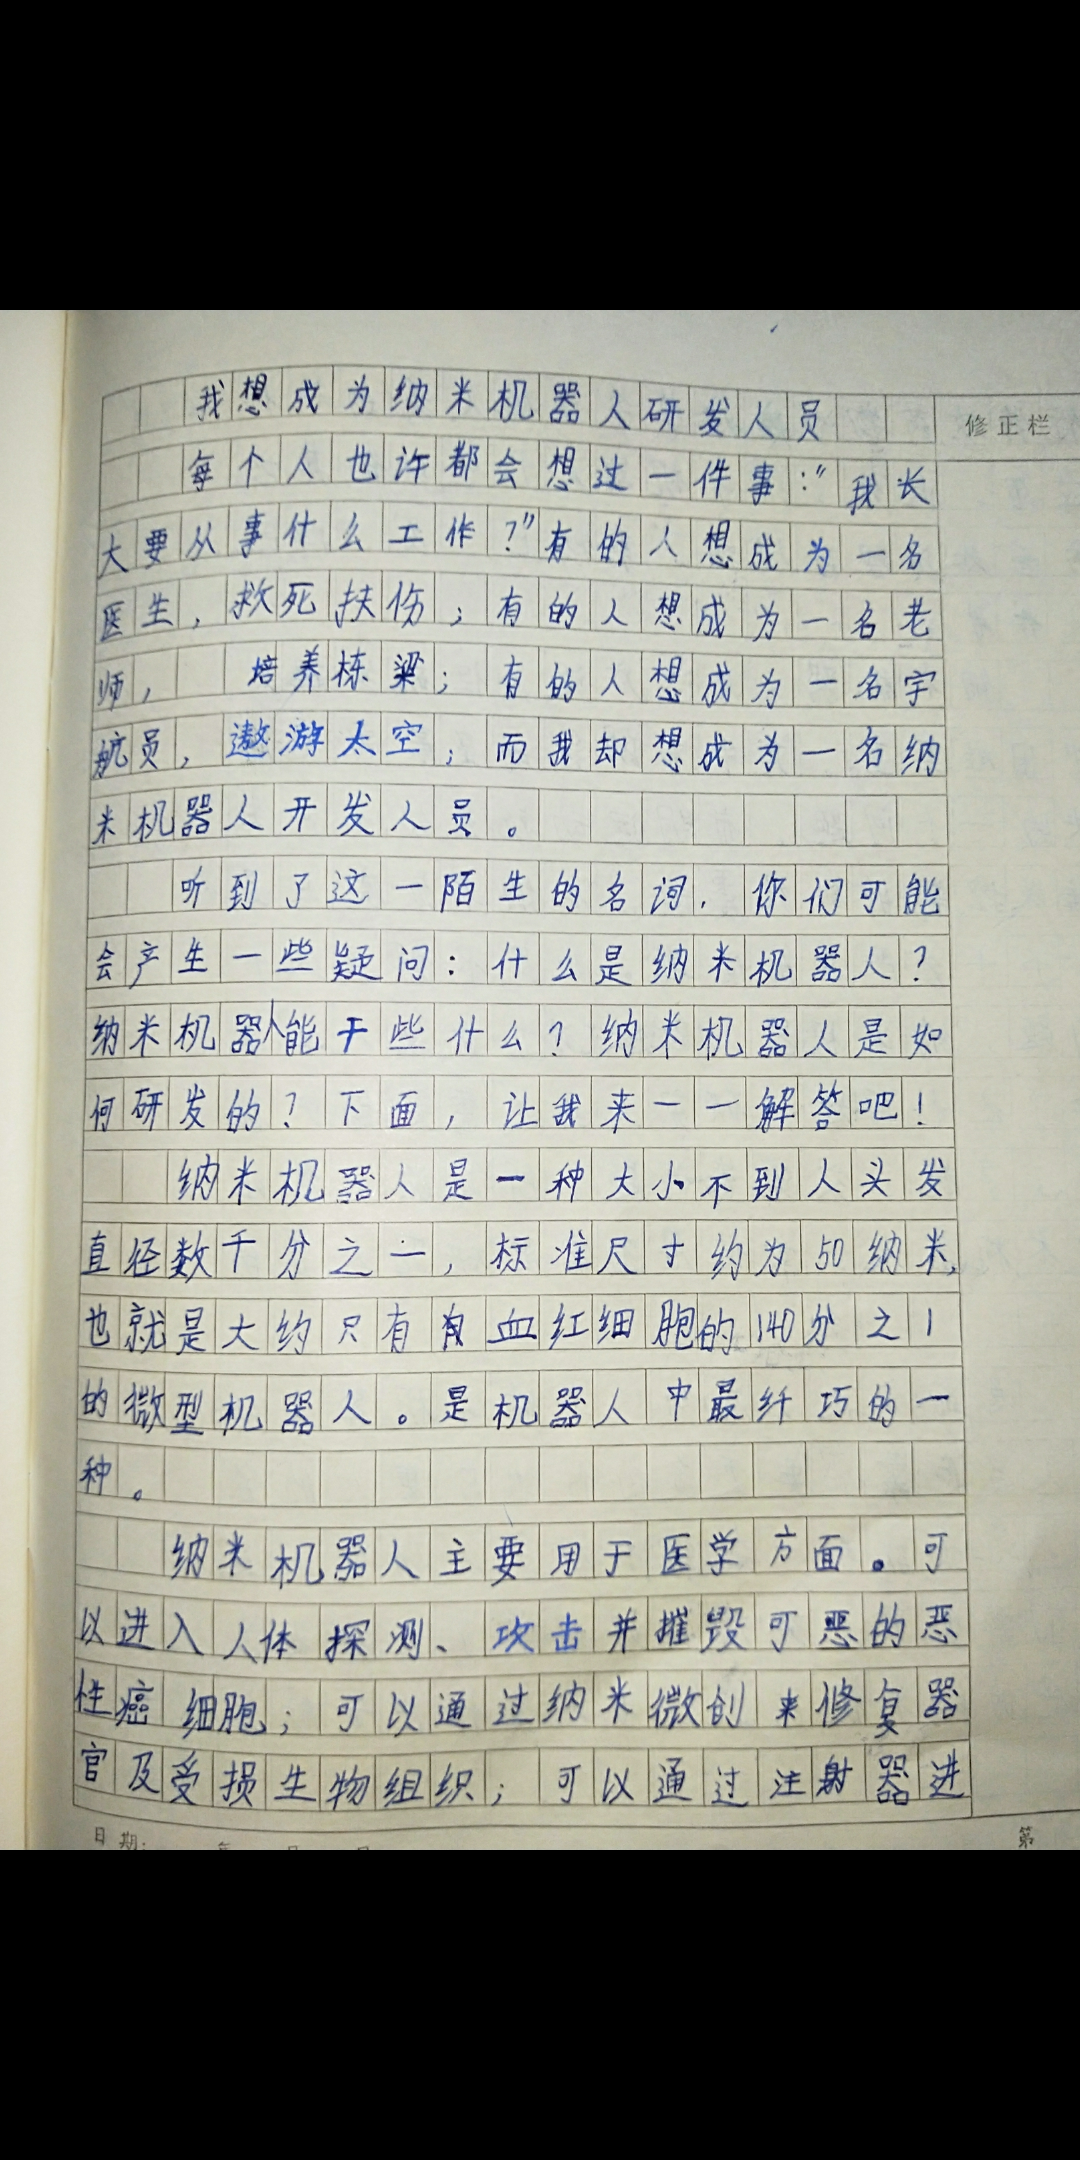 我想成为纳米机器人研发人员
修正栏
每个人也许都会想过一件事:“我长
大要从事什么工作?”有的人想成为一名
医生,救死扶伤;有的人想成为一名老
师,培养栋梁;有的人想成为一名宇
航员,遨游太空;而我却想成为一名纳
米机器人开发人员。
听到了这一陌生的名词.你们可能
会产生一些疑问:什么是纳米机器人?
纳米机器人能干些什么?纳米机器人是如
何研发的?下面,让我来一一解答吧!
纳米机器人是一种大小不到人头发
直径数千分之一,标准尺寸约为50纳米,
也就是大约只有有血红细胞的140分之1
的微型机器人。是机器人中最纤巧的一
种。
纳米机器人主要用于医学方面。可
以进入人体探测、攻击并摧毁可恶的恶
性癌细胞;可以通过纳米微创来修复器
官及受损生物组织;可以通过注射器进
日期:
第